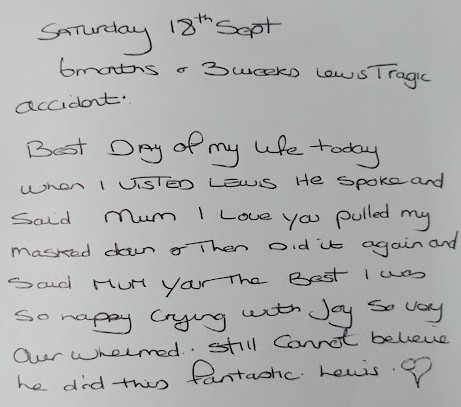 Saturday 18th Sept
6 months & 3 weeks Lewis Tragic
accident.
Best Day of my life today
when I visted Lewis He spoke and
Said Mum I Love you pulled my
masked down & Then Did it again and
Said Mum your The Best I was
So happy Crying with Joy So very
Over whelmed. Still Cannot believe
he did this fantastic. Lewis. ♡